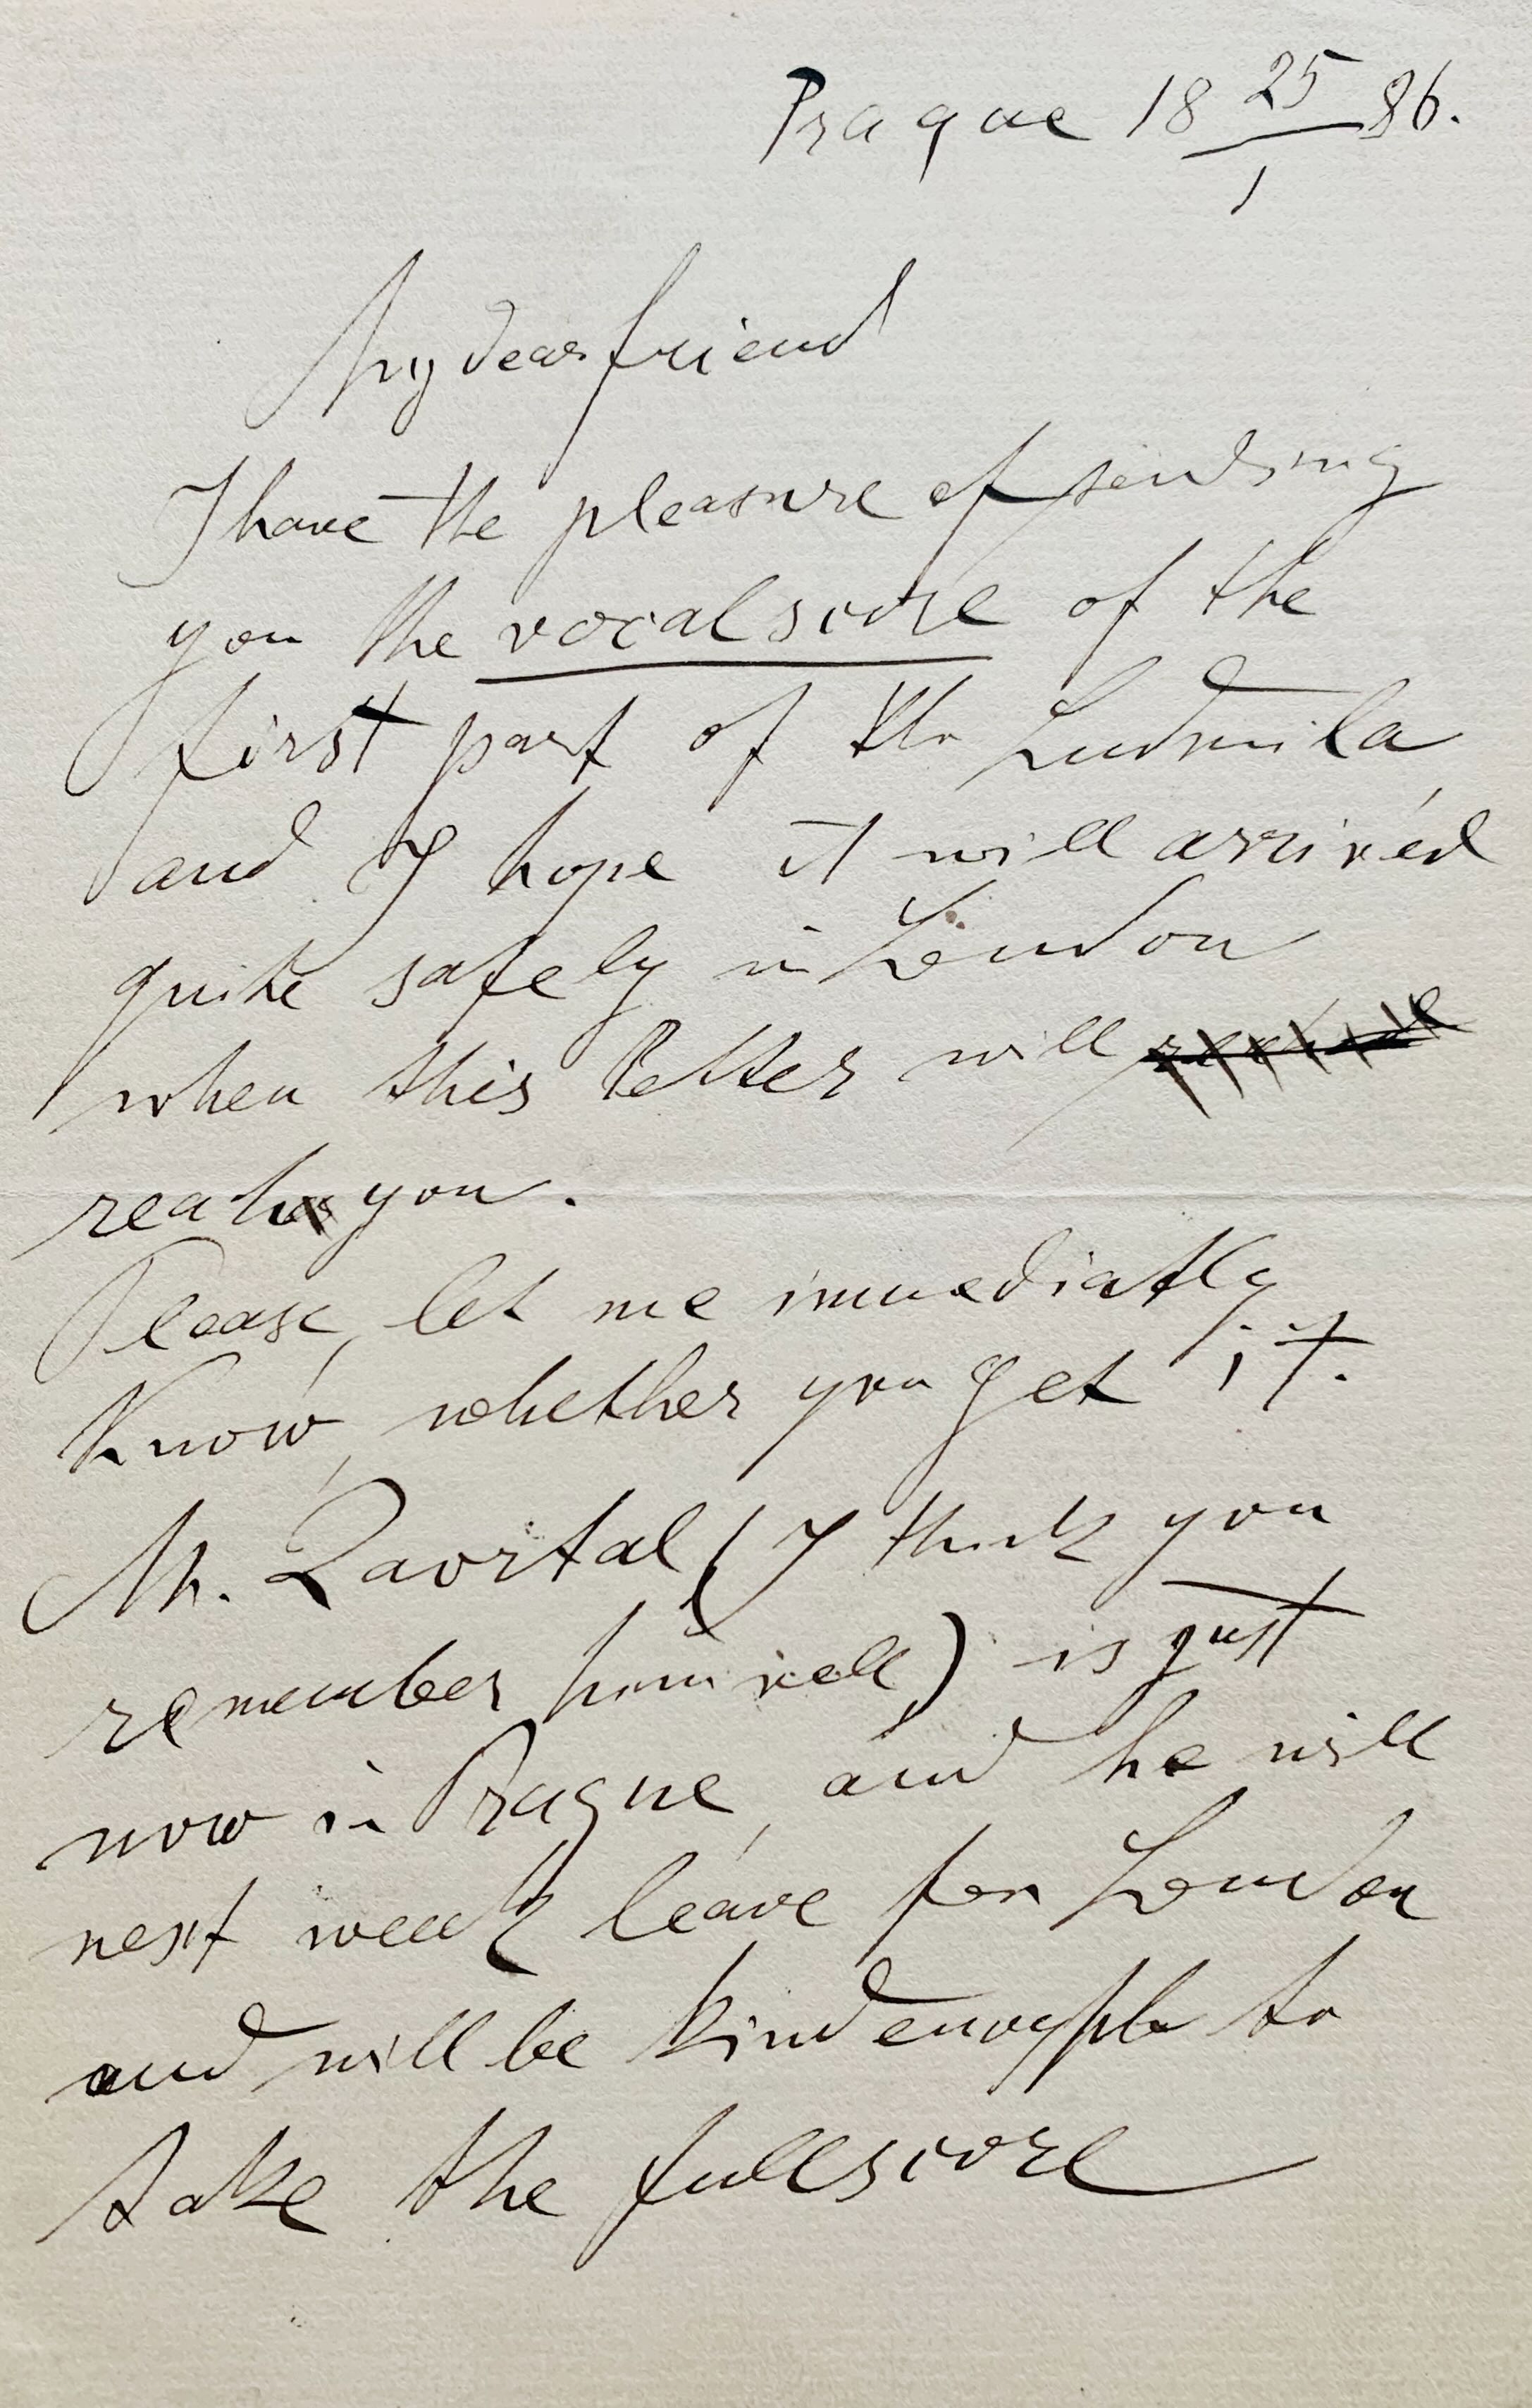 Prague 18 25/1 86.
My dear friend
I have the pleasure of sending
you the vocal score of the
first part of the Ludmila
and I hope it will arrived
quite safely in London
when this letter will
reach you.
Please, let me immediatly
Know, whether you get it.
M. Zavrtal (I think you
remember him well) is just
now in Prague, and he will
next week leave for London
and will be kind enough to
take the fullscore